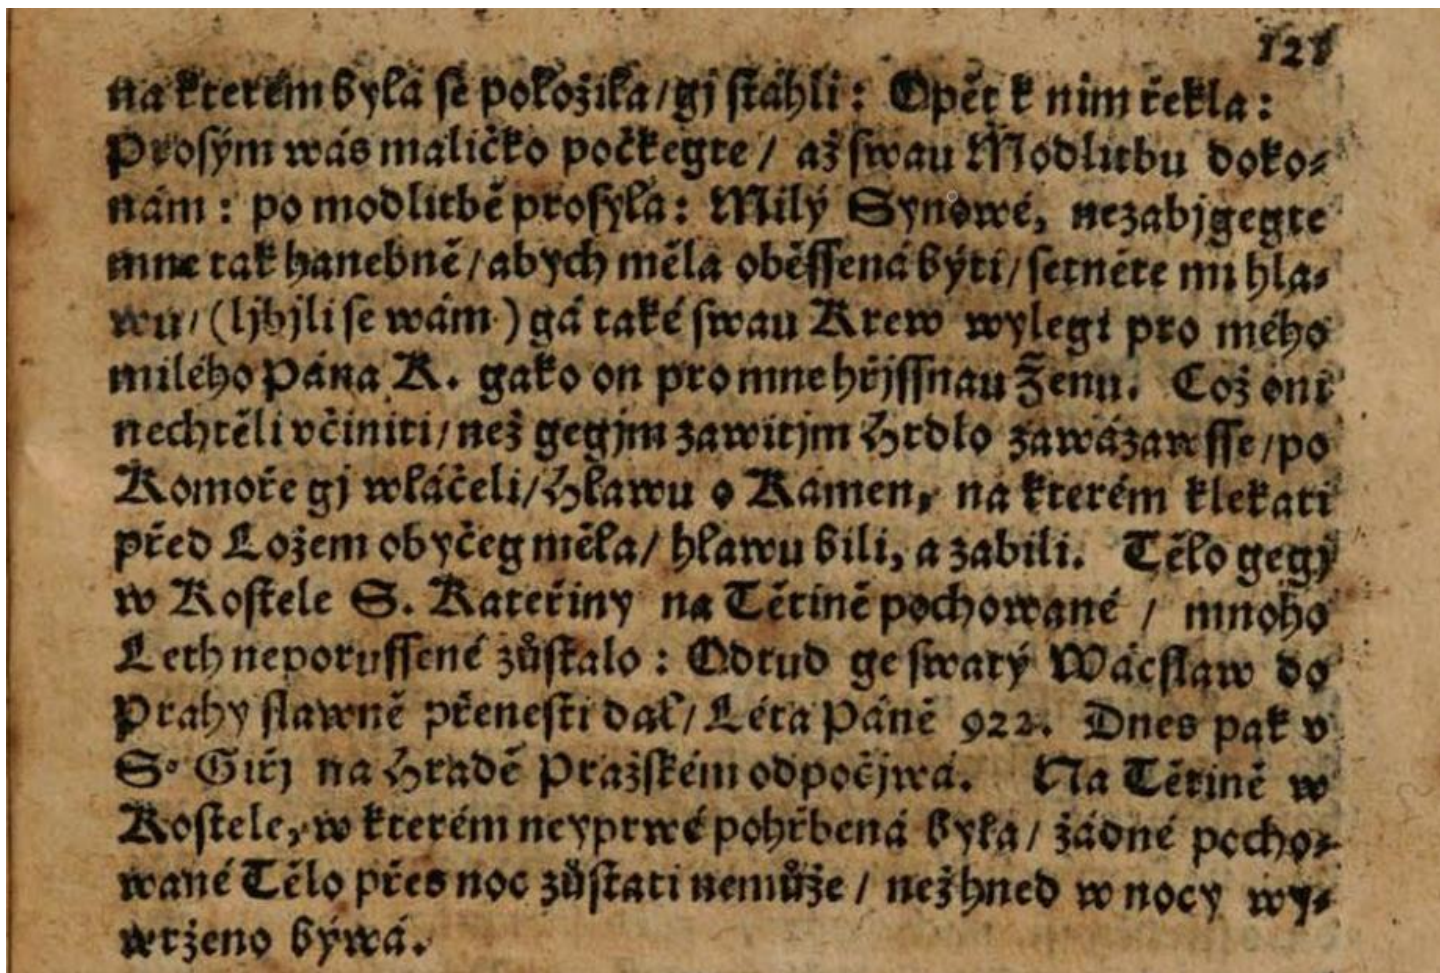 121
na kterém byla se položila / gj stáhli: Opět k nim řekla:
Prosým wás maličko počkegte / až swau Modlitbu doko-
nám: po modlitbě prosyla: Milý Synowé, nezabjgegte
mne tak hanebně / abych měla oběssená býti / setněte mi hla-
wu / (ljbjli se wám) gá také swau Krew wylegi pro mého
milého Pána K. gako on pro mne hřjssnau Ženu. Což oni
nechtěli včiniti / než gegjm zawitjm Hrdlo zawázawsse / po
Komoře gj wláčeli / Hlawu o Kámen, na kterém klekati
před Ložem obyčeg měla / hlawu bili, a zabili. Tělo gegj
w Kostele S. Kateřiny na Tětině pochowané / mnoho
Leth neporussené zůstalo: Odtud ge swatý Wácslaw do
Prahy slawně přenesti dal / Léta Páně 922. Dnes pak v
S. Giřj na Hradě Pražském odpočjwá. Na Tětině w
Kostele, w kterém neyprwé pohřbená byla / žádné pocho-
wané Tělo přes noc zůstati nemůže / než hned w nocy wy-
wrženo býwá.